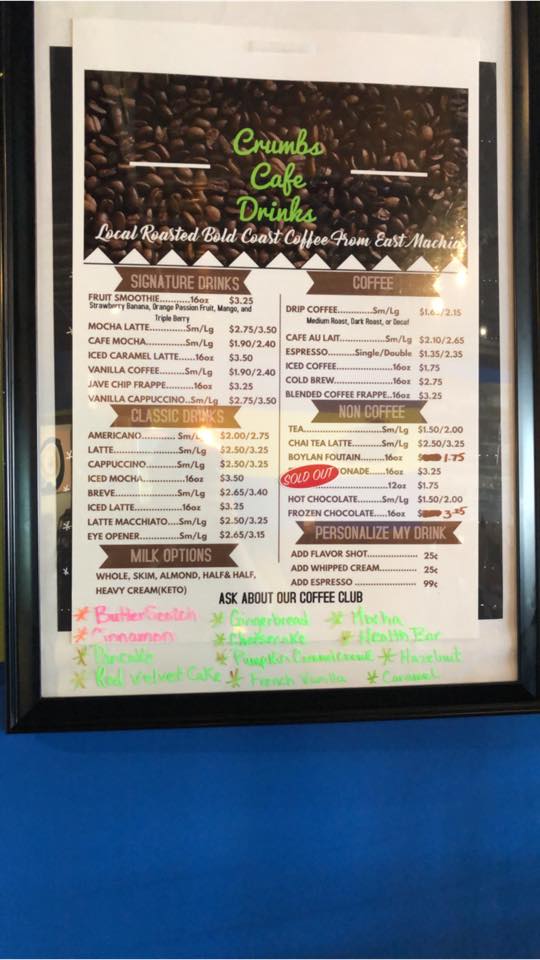 Crumbs
Cafe
Drinks
Local Roasted Bold Coast Coffee From East Machias
SIGNATURE DRINKS
FRUIT SMOOTHIE............16oz $3.25
Strawberry Banana, Orange Passion Fruit, Mango, and
Triple Berry
MOCHA LATTE...............Sm/Lg $2.75/3.50
CAFE MOCHA................Sm/Lg $1.90/2.40
ICED CARAMEL LATTE......16oz $3.50
VANILLA COFFEE............Sm/Lg $1.90/2.40
JAVE CHIP FRAPPE..........16oz $3.25
VANILLA CAPPUCCINO..Sm/Lg $2.75/3.50
CLASSIC DRINKS
AMERICANO............Sm/Lg $2.00/2.75
LATTE.....................Sm/Lg $2.50/3.25
CAPPUCCINO............Sm/Lg $2.50/3.25
ICED MOCHA..............16oz $3.50
BREVE.....................Sm/Lg $2.65/3.40
ICED LATTE................16oz $3.25
LATTE MACCHIATO...Sm/Lg $2.50/3.25
EYE OPENER.............Sm/Lg $2.65/3.15
MILK OPTIONS
WHOLE, SKIM, ALMOND, HALF& HALF,
HEAVY CREAM(KETO)
COFFEE
DRIP COFFEE............Sm/Lg /2.15
Medium Roast, Dark Roast, or Decaf
CAFE AU LAIT..............Sm/Lg $2.10/2.65
ESPRESSO..........Single/Double $1.35/2.35
ICED COFFEE..................16oz $1.75
COLD BREW....................16oz $2.75
BLENDED COFFEE FRAPPE..16oz $3.25
NON COFFEE
TEA........................Sm/Lg $1.50/2.00
CHAI TEA LATTE..........Sm/Lg $2.50/3.25
BOYLAN FOUTAIN.......16oz $ 1.75
SOLD OUT ONADE.......16oz $3.25
12oz $1.75
HOT CHOCOLATE........Sm/Lg $1.50/2.00
FROZEN CHOCOLATE.....16oz $ 3.25
PERSONALIZE MY DRINK
ADD FLAVOR SHOT.............. 25¢
ADD WHIPPED CREAM.......... 25¢
ADD ESPRESSO .................. 99¢
ASK ABOUT OUR COFFEE CLUB
Butter Scotch Gingerbread Mocha
Cinnamon Cheesecake Health Bar
Pancake Pumpkin Hazelnut
Red Velvet Cake French Vanilla Caramel